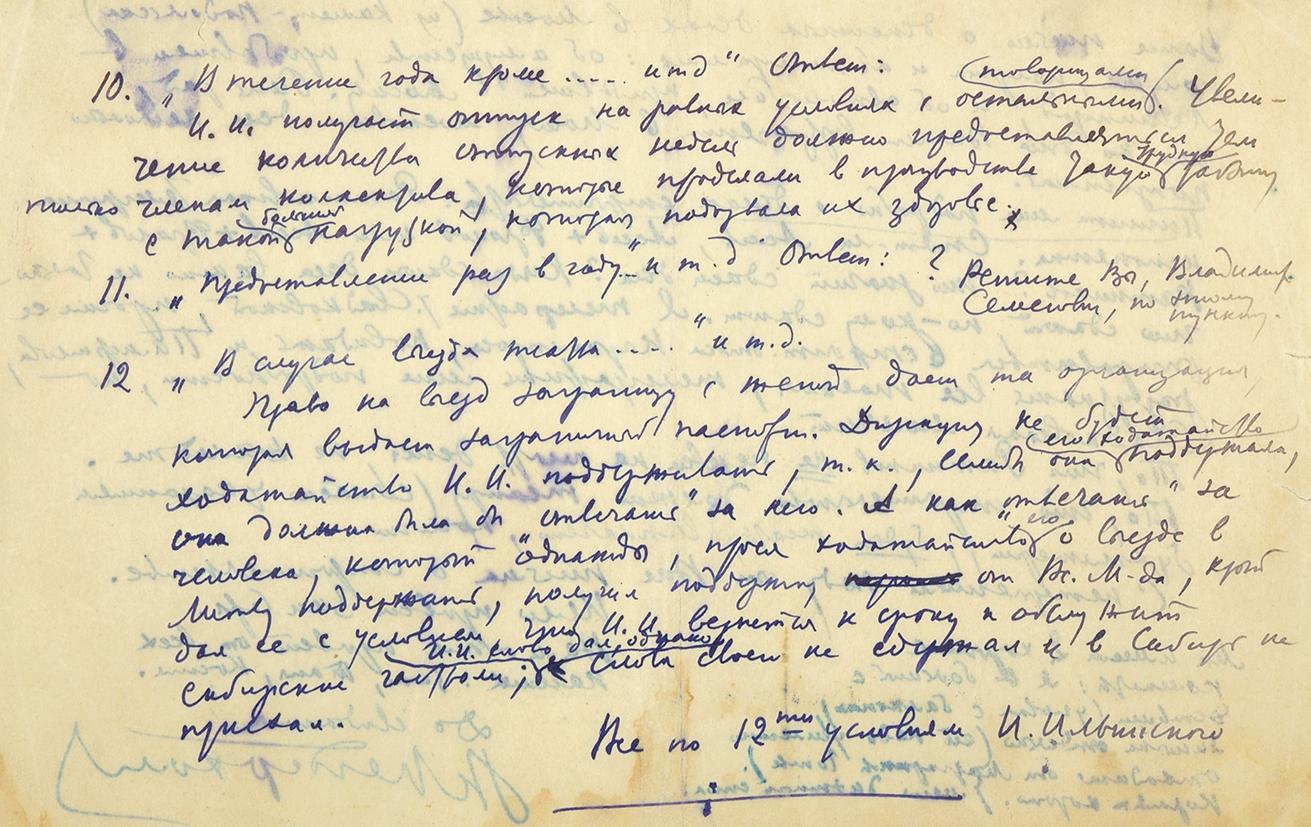 10. „В течение года кроме ..... итд" Ответ:
И. И. получает отпуск на равных условиях с остальными товарищами. Увели-
чение количества отпускных недель должно предоставляться Зем
только членам коллектива, которые проделали в производстве такую трудную работу
с такой большой нагрузкой, которая подорвала их здоровье.
11. „Предоставление раз в году..." и т. д Ответ: ? Решите Вы, Владимир
Семенович, по этому
пункту.
12 „В случае выезда театра ....." и т.д.
Право на выезд заграницу с женой дает та организация,
которая выдает заграничный паспорт. Дирекция не будет
ходатайство И. И. поддерживать, т. к., если б она его ходатайство поддержала,
она должна была бы „отвечать" за него. А как „отвечать" за
человека, который однажды, прося ходатайство его о выезде в
Москву поддержать, получил поддержку от Вс. М-да, крый
дал ее с условием, что И. И. вернется к сроку и обслужит
Сибирские гастроли; И.И. слово дал, однако слова своего не сдержал и в Сибирь не
приехал.
Все по 12ти условиям И. Ильинского